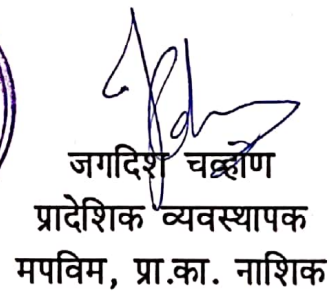 जगदिश चव्हाण
प्रादेशिक व्यवस्थापक
मपविम, प्रा.का. नाशिक